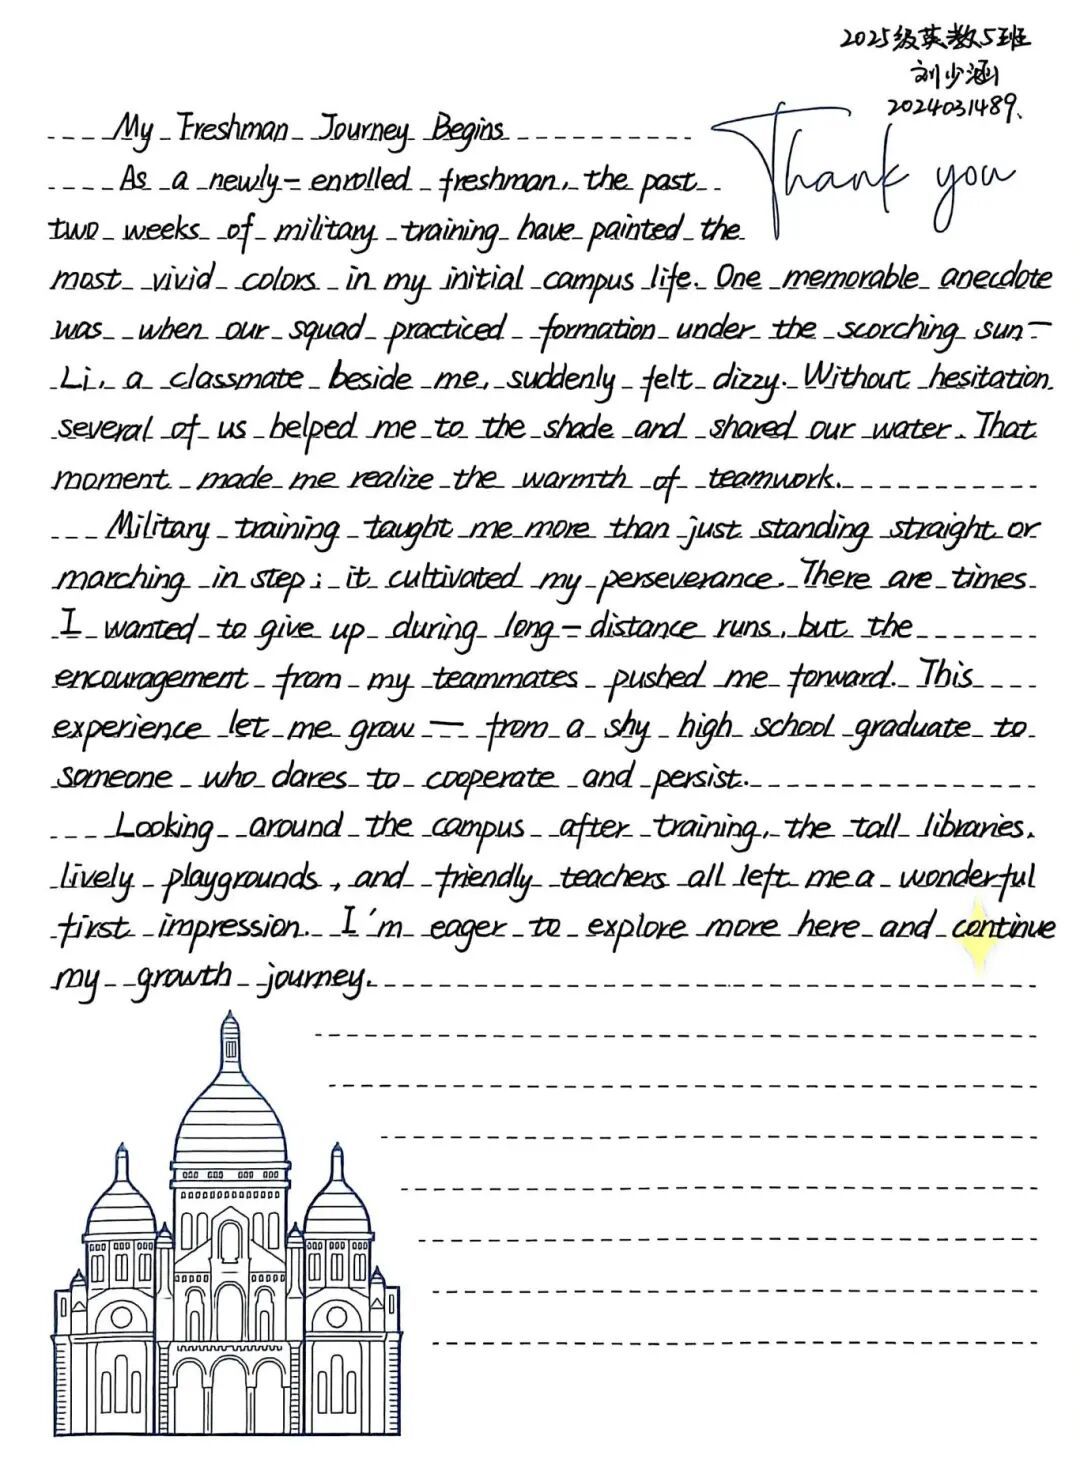 2025级英数5班
刘少涵
2024031489.
Thank you
My Freshman Journey Begins
As a newly-enrolled freshman, the past
two weeks of military training have painted the
most vivid colors in my initial campus life. One memorable anecdote
was when our squad practiced formation under the scorching sun—
Li, a classmate beside me, suddenly felt dizzy. Without hesitation
several of us helped me to the shade and shared our water. That
moment made me realize the warmth of teamwork.
Military training taught me more than just standing straight or
marching in step; it cultivated my perseverance. There are times
I wanted to give up during long-distance runs, but the
encouragement from my teammates pushed me forward. This
experience let me grow — from a shy high school graduate to
someone who dares to cooperate and persist.
Looking around the campus after training, the tall libraries,
lively playgrounds, and friendly teachers all left me a wonderful
first impression. I'm eager to explore more here and continue
my growth journey.